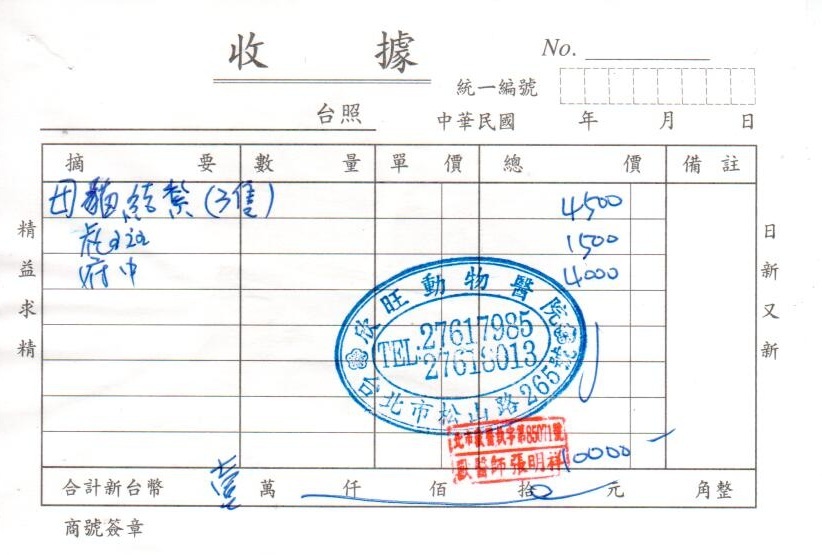 收 據
No.
統一編號
台照
中華民國 年 月 日
摘 要 數 量 單 價 總 價 備 註
母貓結紮(3隻) 4500
虎斑 1500
府中 4000
精益求精
日新又新
欣旺動物醫院
TEL:27617985
27618013
台北市松山路265號
北市獸醫執字第85071號
獸醫師張明祥
10000
合計新台幣 壹 萬 仟 佰 拾 0 元 角整
商號簽章